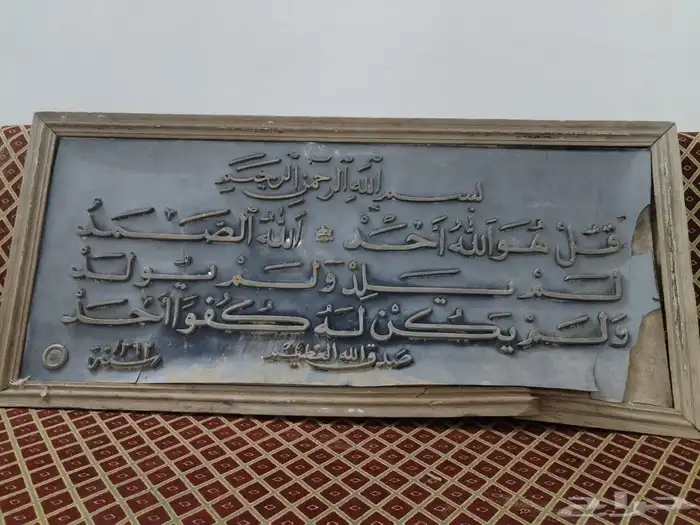 بسم الله الرحمن الرحيم
قُلْ هُوَ اللهُ أَحَدْ اللهُ الصَّمَدُ
لَمْ يَلِدْ وَلَمْ يُولَدْ
وَلَمْ يَكُنْ لَهُ كُفُوًا أَحَدْ
صدق الله العظيم
سنة
حراج